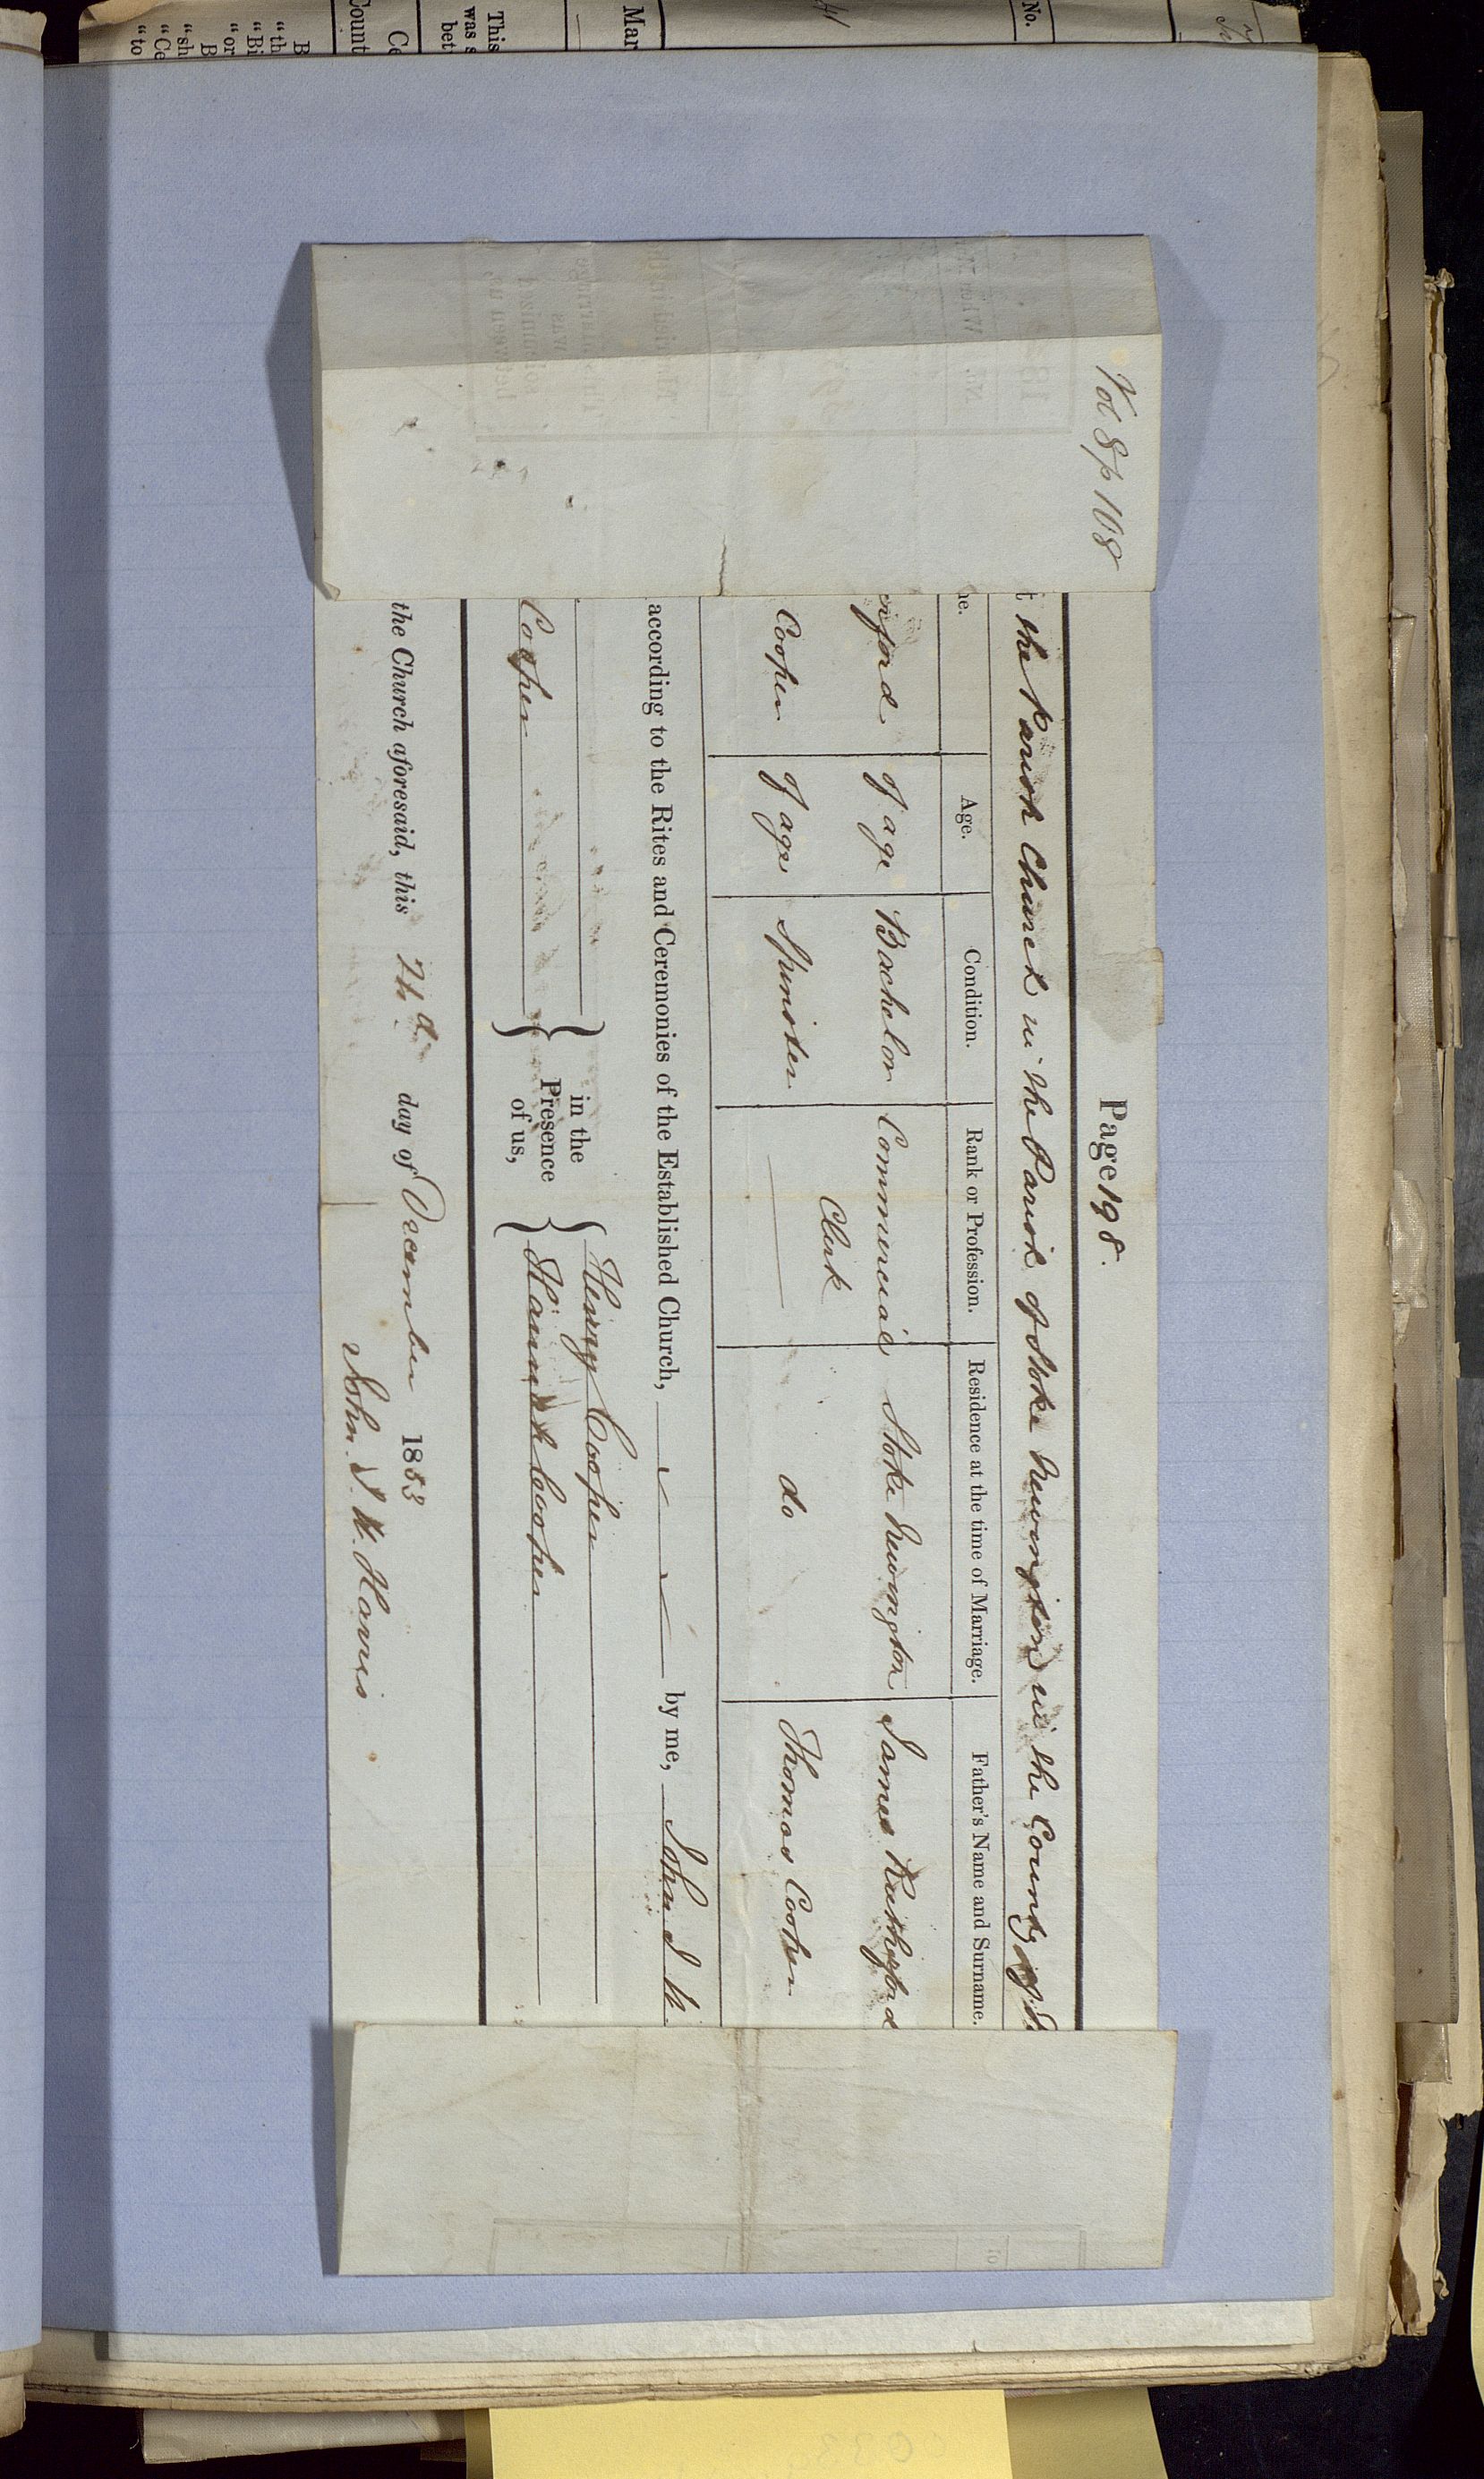 Vol 8 p 108
Page 198.
the Parish Church in the Parish of Stoke Newington in the County of
Age. Condition. Rank or Profession. Residence at the time of Marriage. Father's Name and Surname.
erford Of age Bachelor Commercial Clerk Stoke Newington James Rutherford
Cooper Of age Spinster do Thomas Cooper
according to the Rites and Ceremonies of the Established Church, by me, John J. W.
in the Presence of us,
Henry Cooper
Cooper Hannah Cooper
the Church aforesaid, this day of December 1853
John. J. W. Harris
No.
Mar
This
was s
bet
Ce
Count
B
"th
"Bi
"or
B
"sh
"Ce
"to